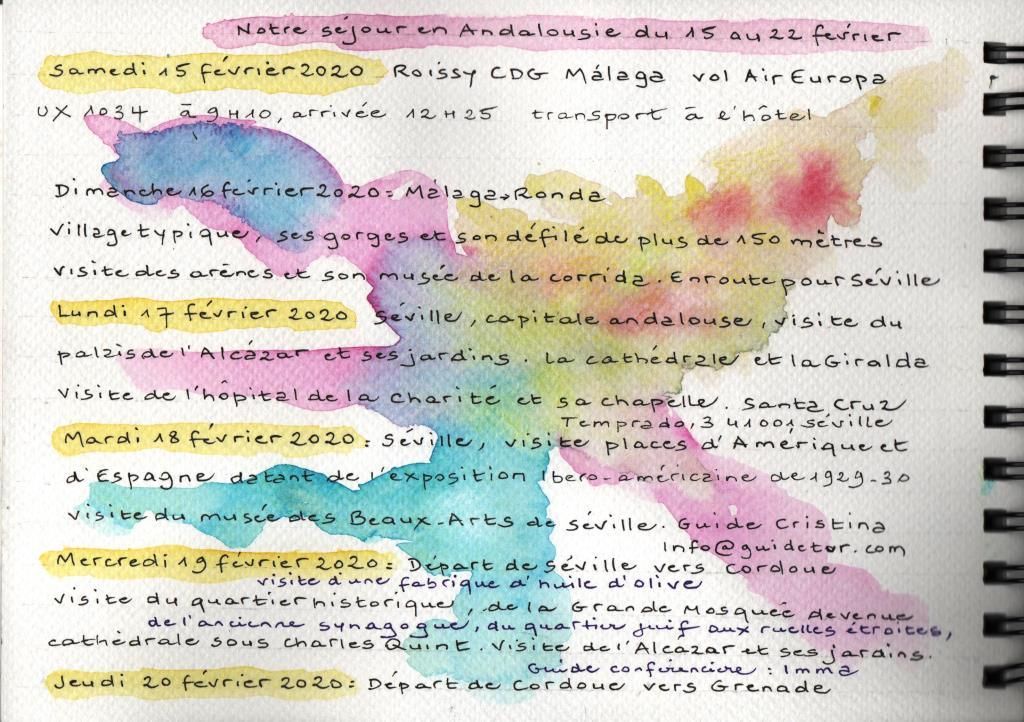 Notre séjour en Andalousie du 15 au 22 février
Samedi 15 février 2020 Roissy CDG Málaga vol Air Europa
UX 1034 à 9H10, arrivée 12H25 transport à l'hôtel
Dimanche 16 février 2020: Màlaga→Ronda
village typique, ses gorges et son défilé de plus de 150 mètres
visite des arènes et son musée de la corrida. En route pour Séville
Lundi 17 février 2020 Séville, capitale andalouse, visite du
palais de l'Alcázar et ses jardins. La cathédrale et la Giralda
visite de l'hôpital de la Charité et sa chapelle. Santa Cruz
Temprado, 3 41001 Séville
Mardi 18 février 2020: Séville, visite places d'Amérique et
d'Espagne datant de l'exposition Ibero-américaine de 1929-30
visite du musée des Beaux-Arts de Séville. Guide Cristina
Info@guidetor.com
Mercredi 19 février 2020: Départ de Séville vers Cordoue
visite d'une fabrique d'huile d'olive
visite du quartier historique, de la Grande Mosquée devenue
de l'ancienne synagogue, du quartier juif aux ruelles étroites,
cathédrale sous Charles Quint. Visite de l'Alcazar et ses jardins.
Guide conférencière : Imma
Jeudi 20 février 2020: Départ de Cordoue vers Grenade